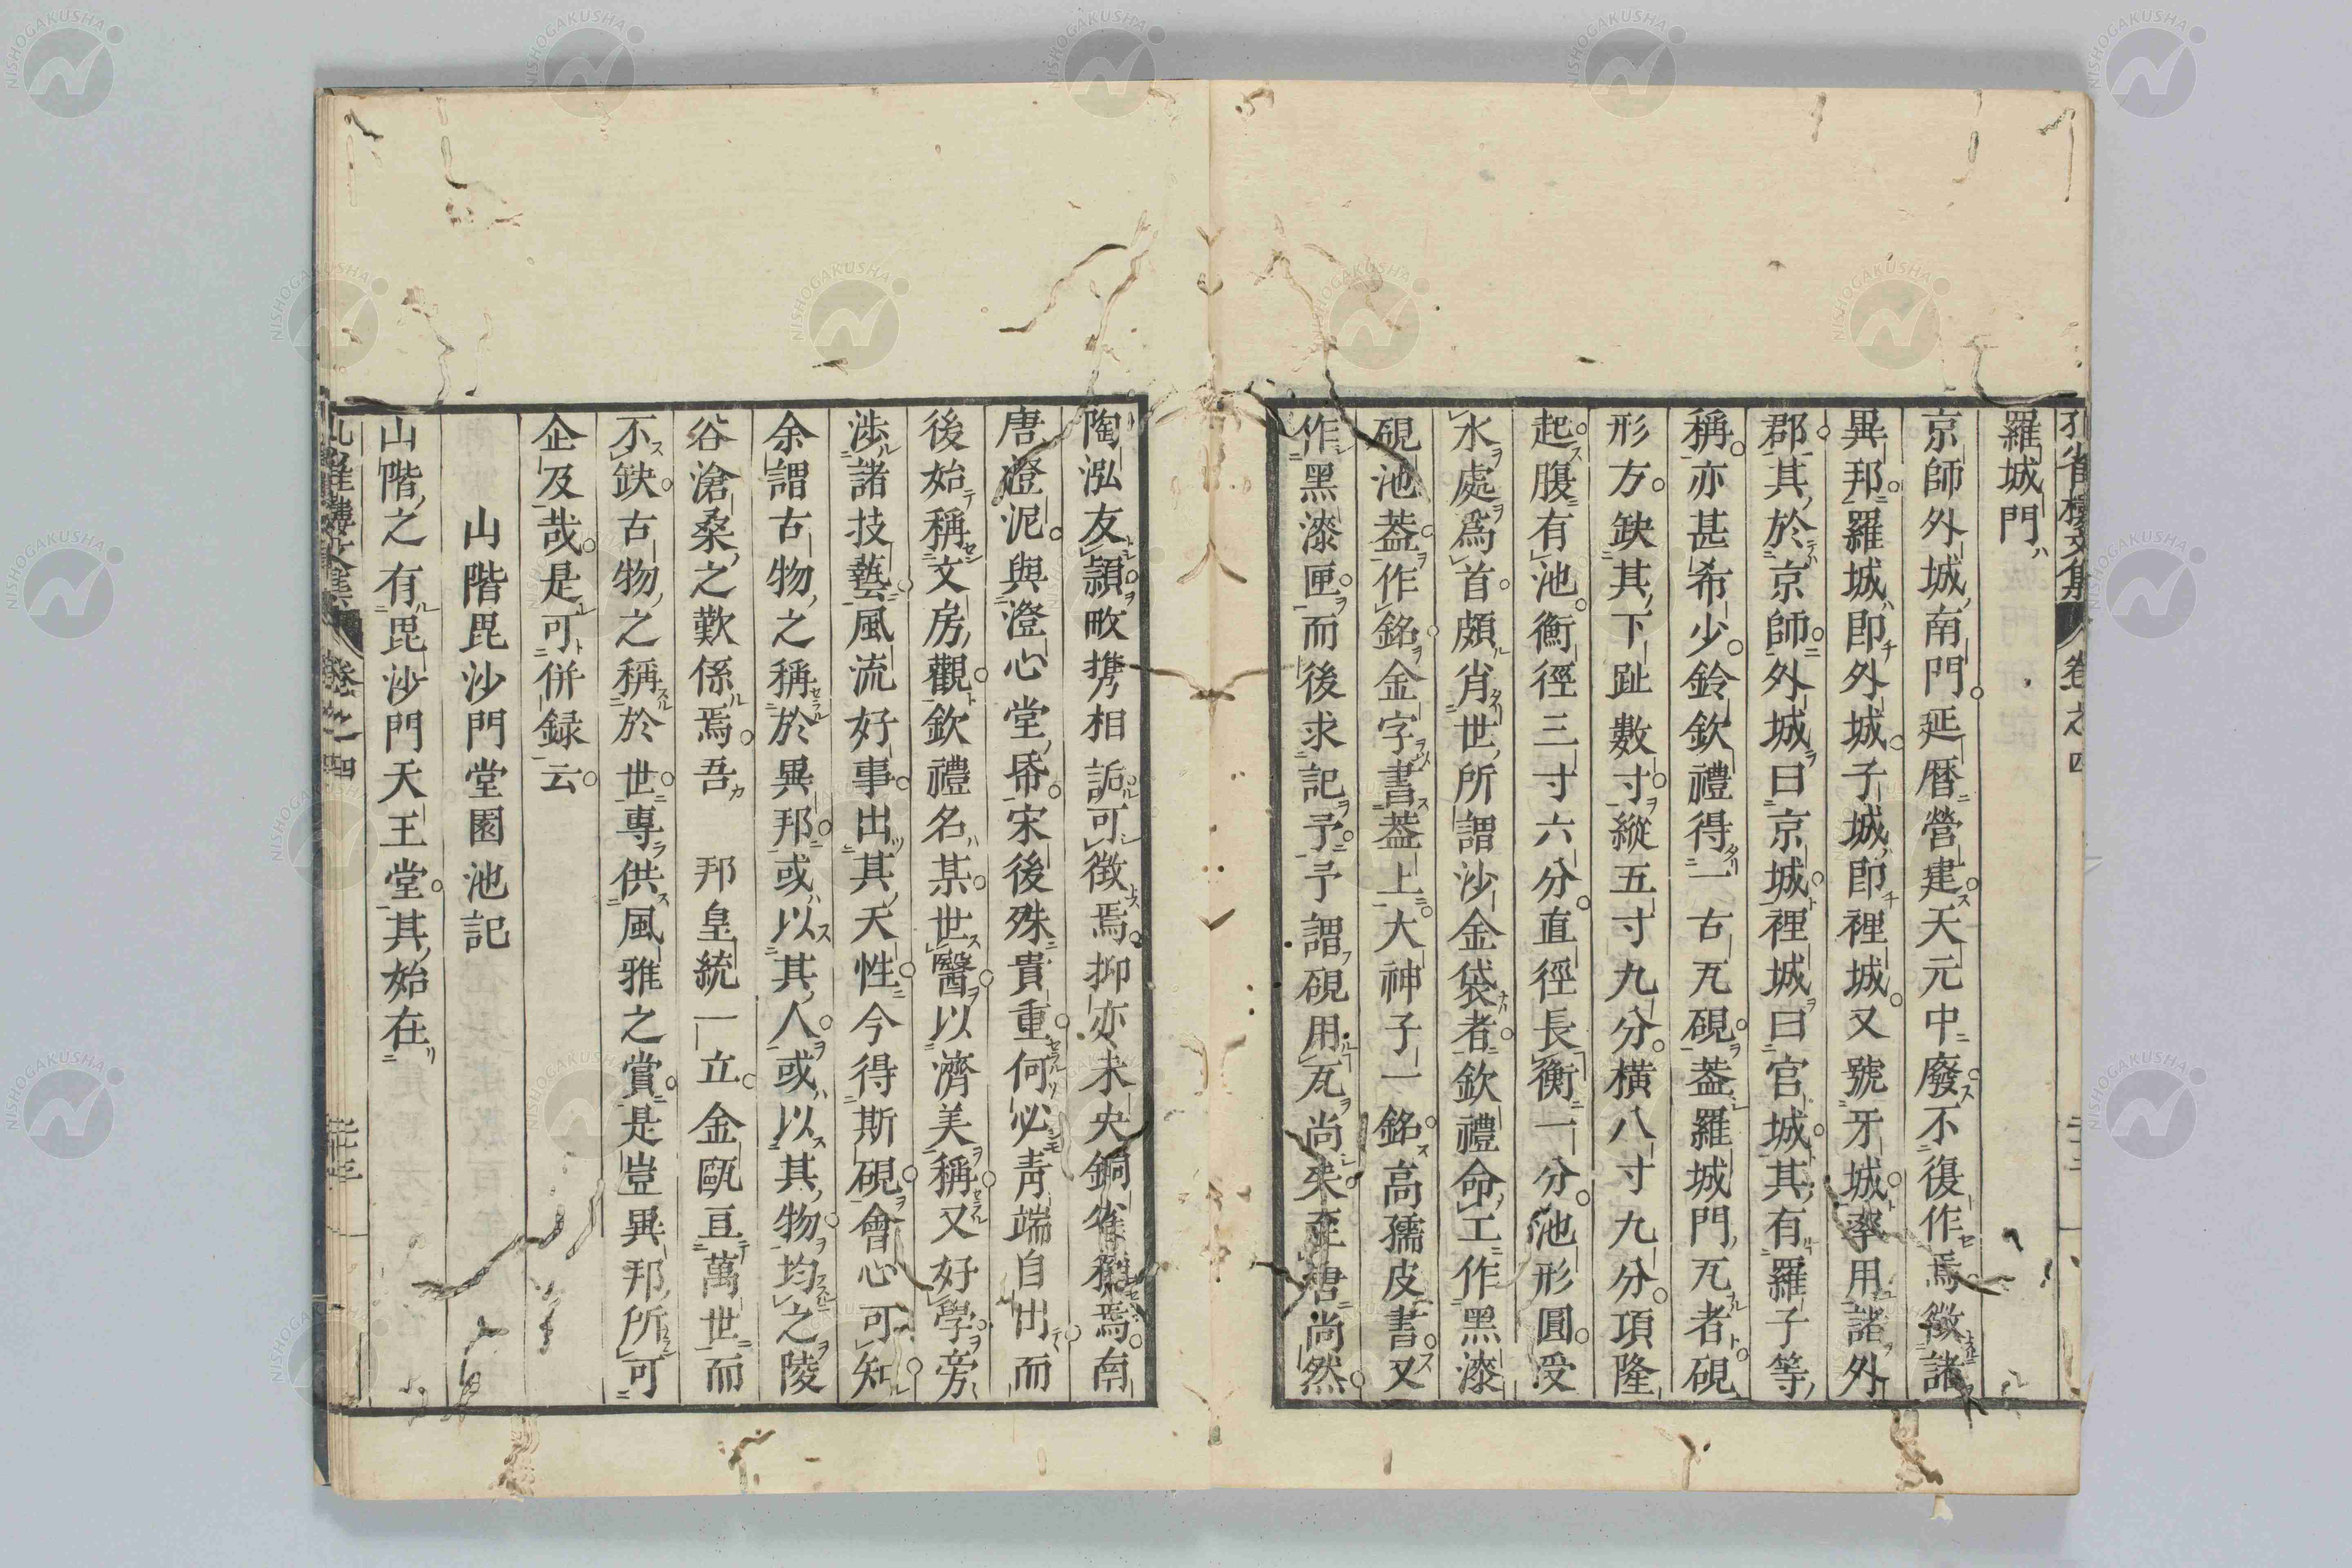 孔雀樓文集 卷之四
羅城門ハ
京師外城ノ南門。延暦營建。天元中廢。不復作焉。徵諸
異邦。羅城即外城。子城即裡城。又號牙城。率用諸外
郡。其於京師。外城曰京城。裡城曰官城。其有羅子等
稱。亦甚希少。鈴欽禮得一古瓦硯。葢羅城門瓦者。硯
形方。缺其下趾數寸。縱五寸九分。橫八寸九分。項隆
起。腹有池。衡徑三寸六分。直徑長衡一分。池形圓。受
水處爲首。頗肖世所謂沙金袋者。欽禮命工作黑漆
硯池葢。作銘。金字書葢上。大神子一銘。高孺皮書。又
作黑漆匣。而後求記予。予謂硯用瓦尚矣。至唐尚然。
陶泓友頴畋携相詬可徵焉。抑亦未央銅雀稱焉。南
唐澄泥。與澄心堂帋。宋後殊貴重。何必青端自出而
後始稱文房觀。欽禮名某。世醫。以濟美稱。又好學。旁
涉諸技藝。風流好事。出其天性。今得斯硯。會心可知。
余謂古物之稱於異邦。或以其人。或以其物。均之陵
谷滄桑之歎係焉。吾 邦皇統一立。金甌亘萬世而
不缺。古物之稱於世。專供風雅之賞。是豈異邦所可
企及哉。是可併録云。
山階毘沙門堂園池記
山階之有毘沙門天王堂。其始在
孔雀樓文集 卷之四 二十三